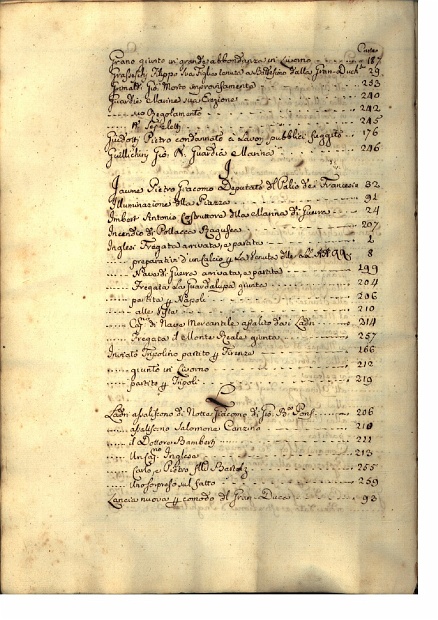 Carte
Grano giunto in grande abbondanza in Livorno 187
Filippo sua figlia tenuta a Battesimo dalla Gran-Duch. 29
Gio. Morto improvisamente 253
Guardie Marine sua Erezione 240
suo Regolamento 242
245
Guidotti Pietro condannato a Lavori pubblici fuggito 176
Guillichini Gio. N. Guardia Marina 246
I
Jaume Pietro Giacomo Deputato del Palio de Francesi 32
Illuminazione della Piazza 91
Imbert Antonio Costruttore della Marina di Guerra 24
Incendio di Pollacca Ragusea 207
Inglesi Fregata arrivata, e partita 2
preparativi d'un Calcio p. la Venuta delle LL. AA. RR. 8
Nave di Guerra arrivata, e partita 199
Fregata La Guadalupa giunta 204
partita p. Napoli 206
alle Vista 210
Cap.no di Nave Mercantile assalito da Ladri 214
Fregata il Monte Reale giunta 257
Inviato Tripolino partito p. Firenze 166
giunto in Livorno 212
partito p. Tripoli 219
L
Ladri assaliscono di Notte Giacomo di Gio. B. Pons 206
assaliscono Salomone Canzino 210
il Dottore Bamberti 211
Un Cap. Inglese 213
Carlo, e Pietro 255
Uno sorpreso sul fatto 259
Lancia nuova p. comodo del Gran-Duca 93